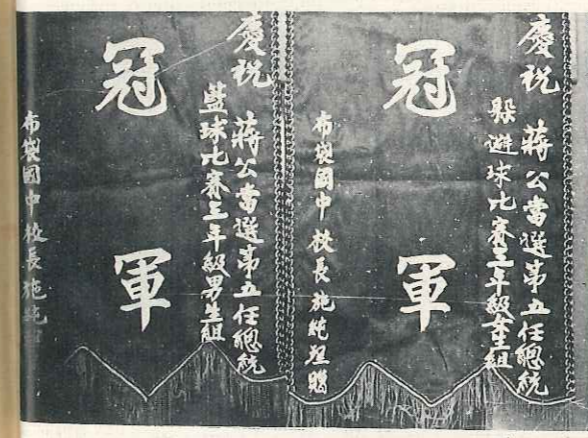 慶祝 蔣公當選第五任總統
躲避球比賽三年級女生組
冠軍
布袋國中校長施純贈
慶祝 蔣公當選第五任總統
籃球比賽三年級男生組
冠軍
布袋國中校長施純